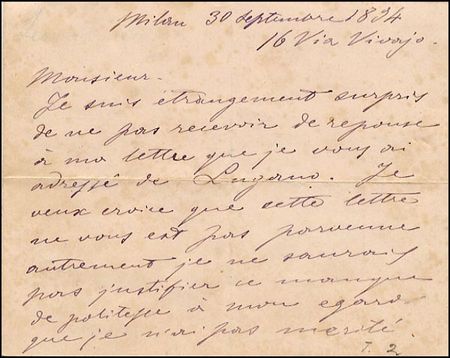 Milan 30 septembre 1894
16 Via Vivajo.
Monsieur.
Je suis étrangement surpris
de ne pas recevoir de reponse
à ma lettre que je vous ai
adressé de Lugano. Je
veux croire que cette lettre
ne vous est pas parvenue
autrement je ne saurais
pas justifier ce manque
de politesse à mon egard
que je n'ai pas merité.
T. 2.